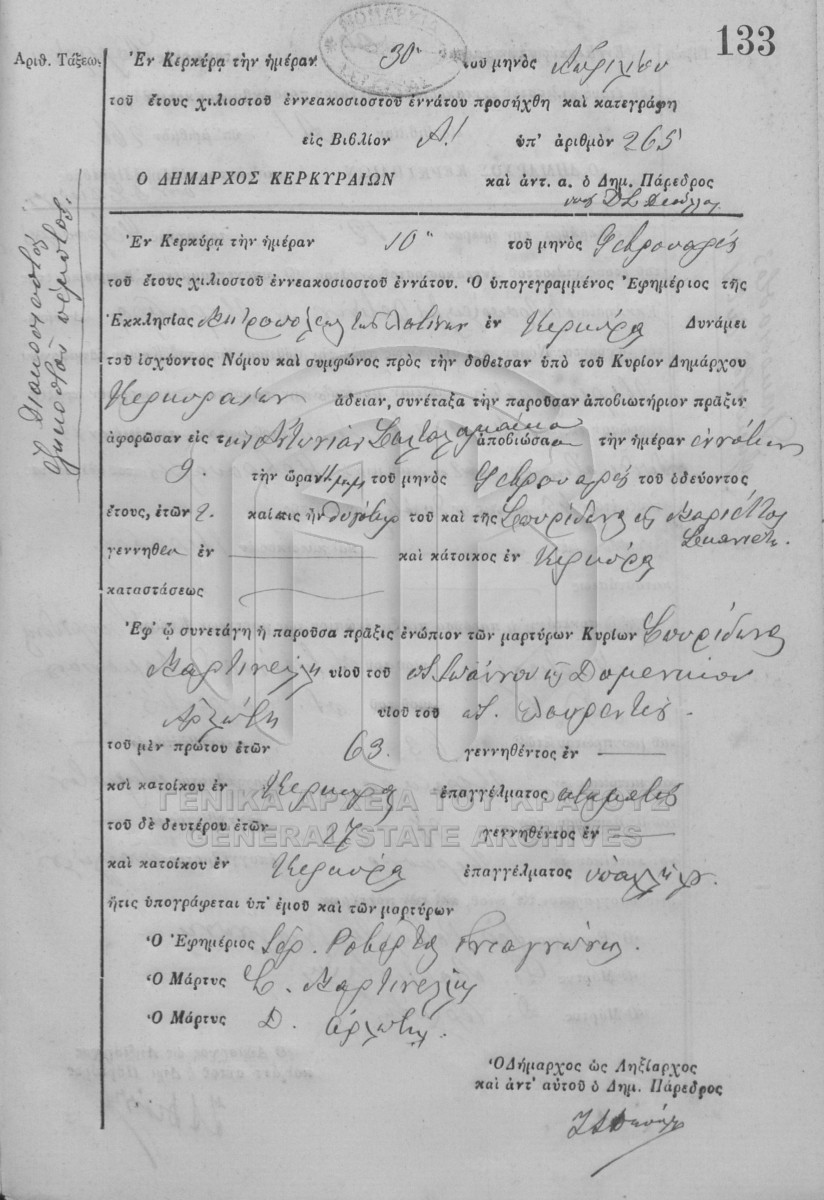 133
Ἀριθ. Τάξεως
Διακοσιοστὸς
ἑξηκοστὸς πέμπτος.
Ἐν Κερκύρᾳ τὴν ἡμέραν 30 τοῦ μηνὸς Ἀπριλίου
τοῦ ἔτους χιλιοστοῦ ἐννεακοσιοστοῦ ἐννάτου προσήχθη καὶ κατεγράφη
εἰς Βιβλίον Α! ὑπ' ἀριθμὸν 265
Ο ΔΗΜΑΡΧΟΣ ΚΕΡΚΥΡΑΙΩΝ καὶ ἀντ. α. ὁ Δημ. Πάρεδρος
Ἐν Κερκύρᾳ τὴν ἡμέραν 10 τοῦ μηνὸς Φεβρουαρίου
τοῦ ἔτους χιλιοστοῦ ἐννεακοσιοστοῦ ἐννάτου. Ὁ ὑπογεγραμμένος Ἐφημέριος τῆς
Ἐκκλησίας Μητροπόλεως τῶν Λατίνων ἐν Κερκύρᾳ Δυνάμει
τοῦ ἰσχύοντος Νόμου καὶ συμφώνος πρὸς τὴν δοθεῖσαν ὑπὸ τοῦ Κυρίου Δημάρχου
Κερκυραίων ἄδειαν, συνέταξα τὴν παροῦσαν ἀποβιωτήριον πρᾶξιν
ἀφορῶσαν εἰς τὴν Ἀντωνίαν ἀποβιώσασαν τὴν ἡμέραν ἐννάτην
9. τὴν ὥραν μμ τοῦ μηνὸς Φεβρουαρίου τοῦ ὁδεύοντος
ἔτους, ἐτῶν 2. καί τις ἦν θυγάτηρ τοῦ καὶ τῆς Σπυρίδωνος καὶ Μαριέττας
γεννηθεῖσα ἐν καὶ κάτοικος ἐν Κερκύρᾳ
καταστάσεως
Ἐφ' ᾧ συνετάγη ἡ παροῦσα πρᾶξις ἐνώπιον τῶν μαρτύρων Κυρίων Σπυρίδωνος
Μαρτινέλλη υἱοῦ τοῦ ποτ. Ἰωάννου καὶ Δομενίκου
Ἀρλώτη υἱοῦ τοῦ ποτ. Λαυρεντίου.
τοῦ μὲν πρώτου ἐτῶν 63. γεννηθέντος ἐν
κσὶ κατοίκου ἐν Κερκύρᾳ ἐπαγγέλματος
τοῦ δὲ δευτέρου ἐτῶν 27 γεννηθέντος ἐν
καὶ κατοίκου ἐν Κερκύρᾳ ἐπαγγέλματος ὑπαλλήλου
ἥτις ὑπογράφεται ὑπ' ἐμοῦ καὶ τῶν μαρτύρων
Ὁ Ἐφημέριος
Ὁ Μάρτυς Σ. Μαρτινέλλης
Ὁ Μάρτυς Δ. Ἀρλώτης.
Ὁ Δήμαρχος ὡς Ληξίαρχος
καὶ ἀντ' αὐτοῦ ὁ Δημ. Πάρεδρος
ΓΕΝΙΚΑ ΑΡΧΕΙΑ ΤΟΥ ΚΡΑΤΟΥΣ
GENERAL STATE ARCHIVES